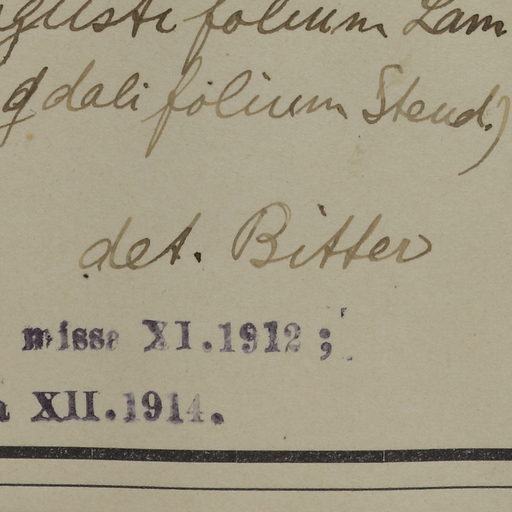 gustifolium Lam
gdalifolium Steud.)
det. Bitter
missa XI.1912;
a XII.1914.